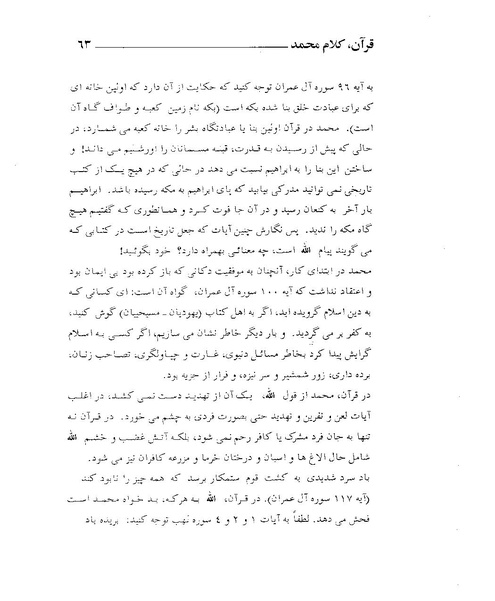 قرآن، کلام محمد ۶۳
به آیه ۹۶ سوره آل عمران توجه کنید که حکایت از آن دارد که اولین خانه ای
که برای عبادت خلق بنا شده بکه است (بکه نام زمین کعبه و طواف گاه آن
است). محمد در قرآن اولین بنا یا عبادتگاه بشر را خانه کعبه می شمارد، در
حالی که پیش از رسیدن به قدرت، قبله مسلمانان را اورشلیم می داند! و
ساختن این بنا را به ابراهیم نسبت می دهد در حالی که در هیچ یک از کتب
تاریخی نمی توانید مدرکی بیابید که پای ابراهیم به مکه رسیده باشد. ابراهیم
بار آخر به کنعان رسید و در آن جا فوت کرد و همانطوری که گفتیم هیچ
گاه مکه را ندید. پس نگارش چنین آیات که جعل تاریخ است در کتابی که
می گویند پیام الله است، چه معنائی بهمراه دارد؟ خود بگوئید!
محمد در ابتدای کار، آنچنان به موفقیت دکانی که باز کرده بود بی ایمان بود
و اعتقاد نداشت که آیه ۱۰۰ سوره آل عمران، گواه آن است: ای کسانی که
به دین اسلام گرویده اید، اگر به اهل کتاب (یهودیان ـ مسیحییان) گوش کنید،
به کفر بر می گردید. و بار دیگر خاطر نشان می سازیم، اگر کسی به اسلام
گرایش پیدا کرد بخاطر مسائل دنیوی، غارت و چپاولگری، تصاحب زنان،
برده داری، زور شمشیر و سر نیزه، و فرار از جزیه بود.
در قرآن، محمد از قول الله، یک آن از تهدید دست نمی کشد، در اغلب
آیات لعن و نفرین و تهدید حتی بصورت فردی به چشم می خورد. در قرآن نه
تنها به جان فرد مشرک یا کافر رحم نمی شود، بلکه آتش غضب و خشم الله
شامل حال الاغ ها و اسبان و درختان خرما و مزرعه کافران نیز می شود.
باد سرد شدیدی به کشت قوم ستمکار برسد که همه چیز را نابود کند
(آیه ۱۱۷ سوره آل عمران). در قرآن، الله به هرکه، بد خواه محمد است
فحش می دهد. لطفاً به آیات ۱ و ۲ و ۴ سوره لهب توجه کنید: بریده باد